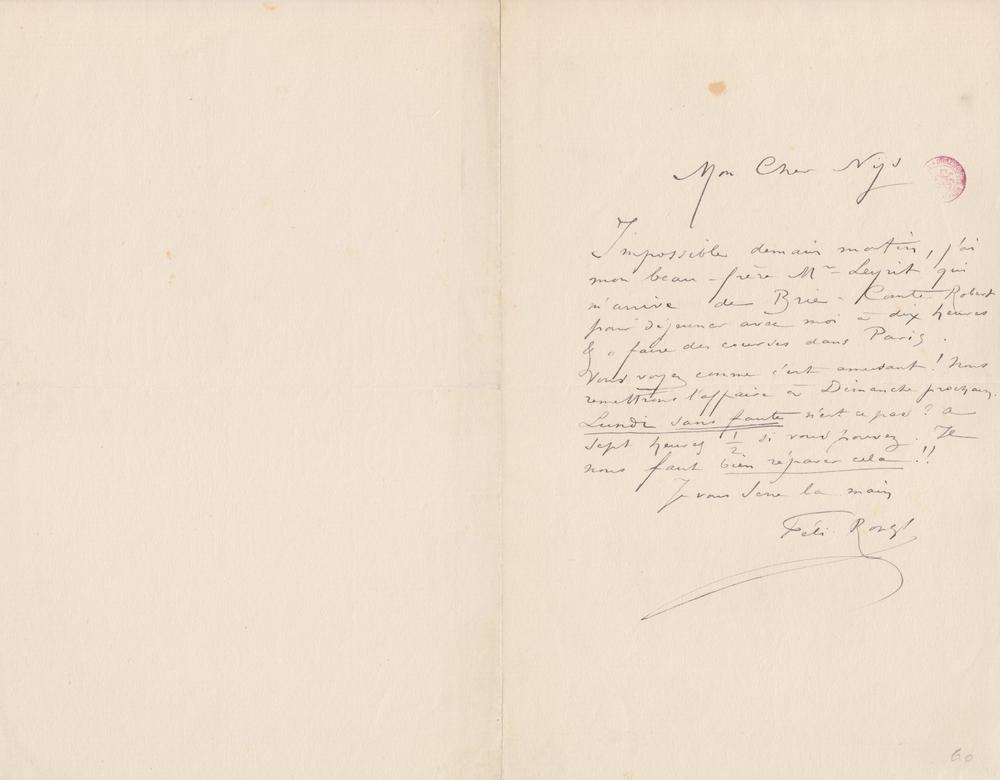 Mon Cher Nijs
Impossible demain matin, j'ai
mon beau-frère Mr Leyrit qui
m'arrive de Brie-Comte-Robert
pour déjeuner avec moi à dix heures
& faire des courses dans Paris.
Vous voyez comme c'est amusant ! nous
remettrons l'affaire à Dimanche prochain.
Lundi sans faute n'est ce pas ? à
sept heures 1/2 si vous pouvez. Je
nous faut bien réparer cela !!
Je vous serre la main
Féli. Rops
60